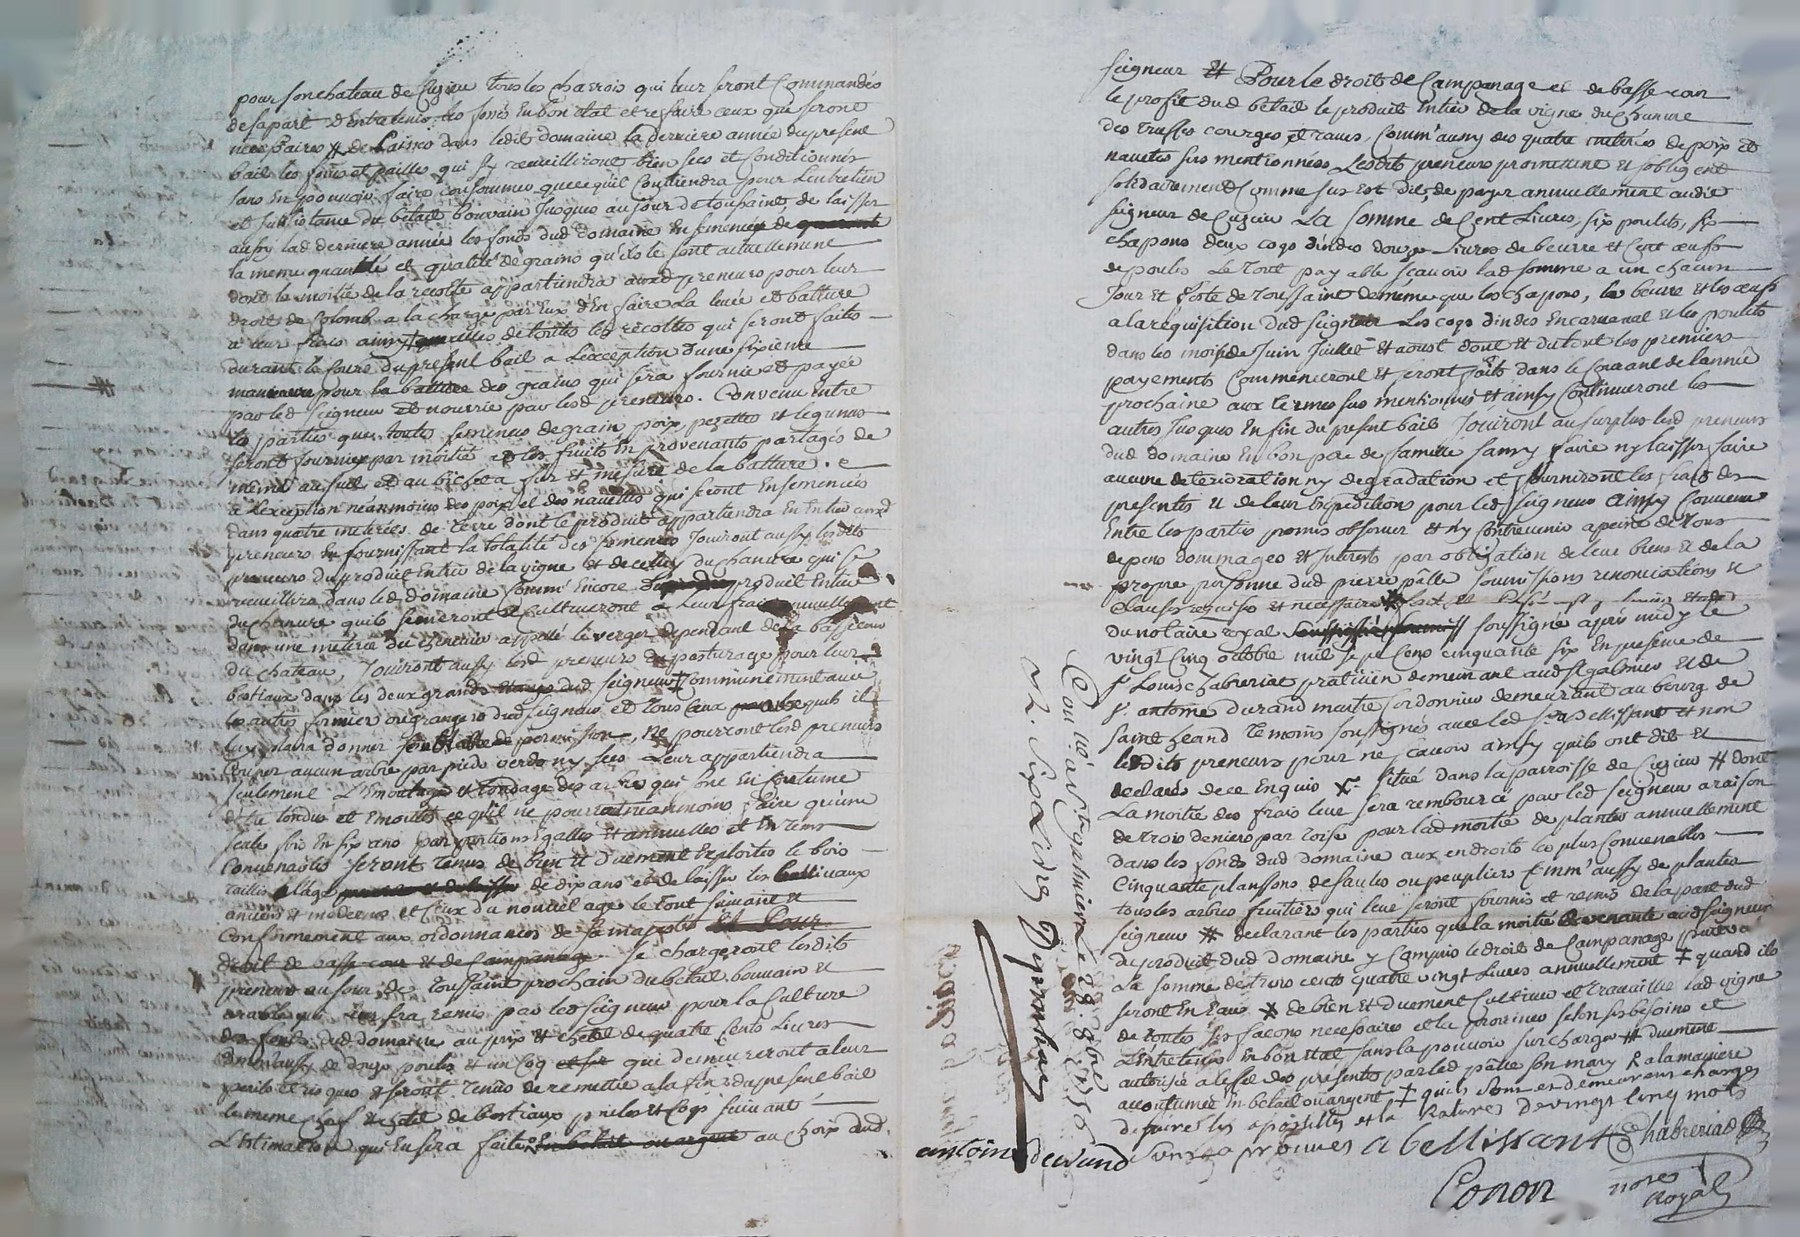 pour son chateau de Cuzieu tous les charrois qui leur seront Commandés
de sa part d'Entretenir les fossés En bon état et refaire ceux que seront
nécessaires # de laisser dans ledit domaine la derniere année du present
bail les foins et pailles qui s'y recueilliront bien secs et Conditionnés
sans En pouvoir faire Consommer que ce qu'il Conviendra pour L'entretien
et subsistance du bétail bouvain Jusques au Jour de toussaint de laisser
aussy lad derniere année les fonds dud domaine En semence de
la meme quantité et qualité de grains qu'ils le sont actuellement
dont la moitié de la recolte appartiendra auxd preneurs pour leur
droit de Colomb a la charge par Eux d'En faire La levée et batture
a leur frais ainsy que celles de toutes les récoltes qui seront faites
durant le Cours du present bail a L'exception d'une sixieme
pour la batture des grains qui sera fournie et payée
par led seigneur et nourrie par lesd preneurs. Convenu Entre
les parties que toutes semences de grain poix pezettes et legumes
seront fournies par moitié et les fruits En provenants partagés de
même au sueil et au bichet a fur et mesure de la batture. e
a L'exception néanmoins des poix et des navettes qui seront Ensemencés
dans quatre meterées de terre dont le produit appartiendra En Entier auxd
preneurs En fournissant la totalité des semences Jouiront aussy lesdits
preneurs du produit Entier de la vigne et de celuy du chanvre qui se
recueillira dans led domaine Comme Encore produit Entier
du chanvre qu'ils semeront et Cultiveront a Leur frais annuellement
dans une meterée du chenevier appellé le verger dependant de la basse cour
du chateau, Jouiront aussy lesd preneurs du pasturage pour leur
bestiaux dans les deux grands etangs dud seigneur ‡ Communement avec
les autres fermier ou grangers dud seigneur et tous Ceux auxquels il
luy plaira donner permission, Ne pourront lesd preneurs
Couper aucun arbre par pieds verds ny secs Leur appartiendra
seulement L'Emondage et tondage des arbres qui sont En Coutume
d'être tondus et Emondés ce qu'il ne pourront néanmoins faire qu'une
seule fois En six ans par portions Egalles et annuelles et En tems
Convenables seront tenus de bien et duement Exploiter le bois
taillis a lage de dix ans et de laisser les balliveaux
anciens et modernes et Ceux du nouvel age le tout suivant et
Conformement aux ordonnances de sa majesté et Pour
droit de basse cour et de Campanage se chargeront lesdits
preneurs au Jour de toussaint prochain du bétail bouvain et
arable qui leur sera remis par led seigneur pour la Culture
des fonds dud domaine au prix et chetel de quatre cents Livres
Comm'aussy de douze poules et un Coq qui demeureront a leur
perils et risques & seront tenus de remettre a la fin du present bail
le meme chef & chetel de bestiaux poules et Coqs suivant
L'Estimation qui En sera faite En bétail ou argent au choix dud
seigneur # Pour le droit de Campanage et de basse cour
le profit dud bétail le produit Entier de la vigne du chanvre
des truffes courges et raves, Comm'aussy des quatre meterées de poix et
navettes sus mentionnées Lesdits preneurs promettent et s'obligent
solidairement Comme sus Est dit, de payer annuellement audit
seigneur de Cuzieu La somme de Cent Livres, six poulets, six
chapons deux coqs d'indes douze Livres de beurre et Cent œufs
de poules Le tout payable scavoir lad somme a un chacun
Jour et feste de Toussaint de même que les chapons, le beurre et les œufs
a la réquisition dud seigneur Les coqs d'indes En carnaval et les poulets
dans les mois de Juin Juillet et aoust dont et du tout les premiers
payements Commenceront et seront faits dans le Courant de lannée
prochaine aux termes sus mentionnés et ainsy Continueront les
autres Jusques En fin du present bail Jouiront au surplus lesd preneurs
dud domaine En bon pere de famille sans y faire ny laisser faire
aucune deterioration ny degradation et fourniront les frais des
presentes et de leur Expeditions pour led seigneur ainsy Convenu
Entre les parties promis observer et n'y Contrevenir a peine de tous
depens dommages et Interets par obligation de leur biens et de la
propre personne dud pierre pâlle soumissions renonciations et
Clauses requises et necessaires fait et Passé
du notaire royal soussigné après midy le
vingt Cinq octobre mil sept Cens cinquante six En presence de
sr Louis chabreriat praticien demeurant aud St galmier et de
sr antoine durand maitre Cordonnier demeurant au bourg de
saint heand Temoins soussignés avec led sr Bellissant et non
lesdits preneurs pour ne scavoir ainsy qu'ils ont dit et
declaré de ce Enquis situé dans la parroisse de Cuzieu # dont
La moitié des frais leur sera remboursé par led seigneur a raison
de trois deniers par toise pour lad moitié de planter annuellement
dans les fonds dud domaine aux endroits les plus Convenables
Cinquante plansons de saules ou peupliers Comm'aussy de planter
tous les arbres fruitiers qui leur seront fournis et remis de la part dud
seigneur # declarant les parties que la moitié Revenante aud seigneur
du produit dud domaine y Compris le droit de Campanage peut
la somme de trois cents quatre vingt Livres annuellement ‡ quand ils
seront En Eaux # de bien et duement Cultiver et travailler lad vigne
de toutes ses facons necessaires et la proviner selon ses besoins et
L'entretenir En bon état sans la pouvoir surcharger # duement
autorisée a l'effet des presentes par led pâlle son mary a la maniere
accoutumée En bétail ou argent ‡ qu'ils
approuvés les apostilles et la Ratures de vingt Cinq mots
antoine durand approuvés a bellissant Chabreriat
Conon
nore
Royal
Conllé a St galmier Le 28. 8bre 1756
R. Six Livres